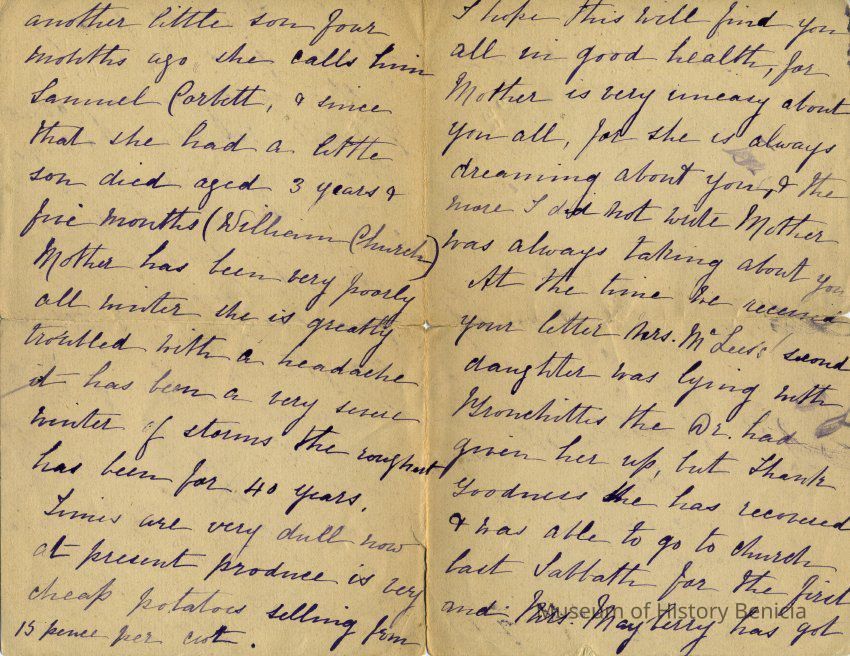 another little son four
months ago she calls him
Samuel Corbett, & since
that she had a little
son died aged 3 years &
five months (William Church)
Mother has been very poorly
all winter she is greatly
troubled with a headache
it has been a very severe
winter of storms the roughest
has been for 40 years.
Times are very dull now
at present produce is very
cheap potatoes selling from
15 pence per cwt.
I hope this will find you
all in good health, for
Mother is very uneasy about
you all, for she is always
dreaming about you, & the
more I did not write Mother
was always talking about you
At the time we received
your letter Mrs. McLees' second
daughter was lying with
Bronchittis the Dr. had
given her up, but Thank
Goodness she has recovered
& was able to go to church
last Sabbath for the first
Mrs. Mayberry has got
Museum of History Benicia